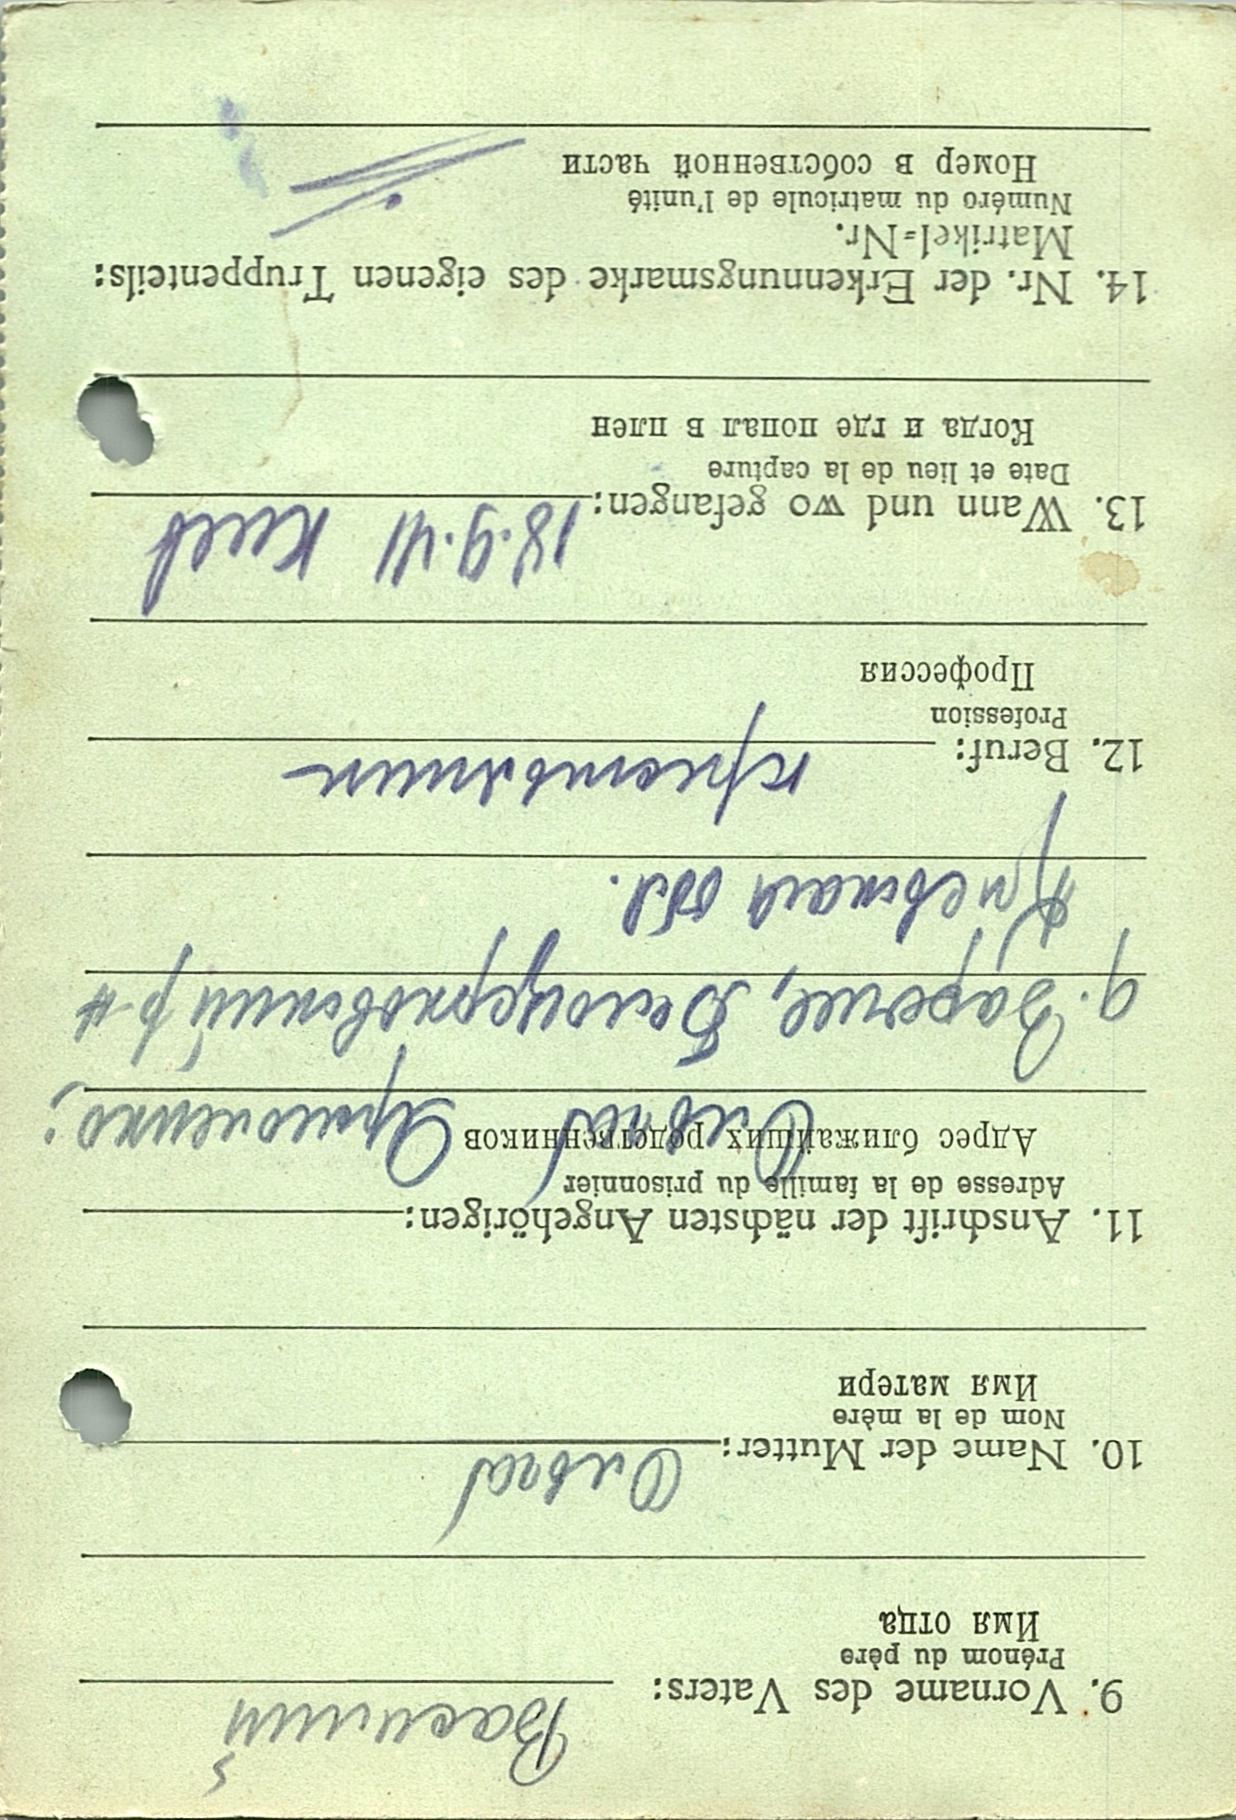 9. Vorname des Vaters: Василий
Prénom du père
Имя отца
10. Name der Mutter: Ольга
Nom de la mère
Имя матери
11. Anschrift der nächsten Angehörigen:
Adresse de la famille du prisonnier
Адрес ближайших родственников
Ольга
д. Заречие, Белоцерковский р-н
Киевская обл.
12. Beruf: крестьянин
Profession
Профессия
13. Wann und wo gefangen: 18.9.41 Киев
Date et lieu de la capture
Когда и где попал в плен
14. Nr. der Erkennungsmarke des eigenen Truppenteils:
Matrikel-Nr.
Numéro du matricule de l'unité
Номер в собственной части